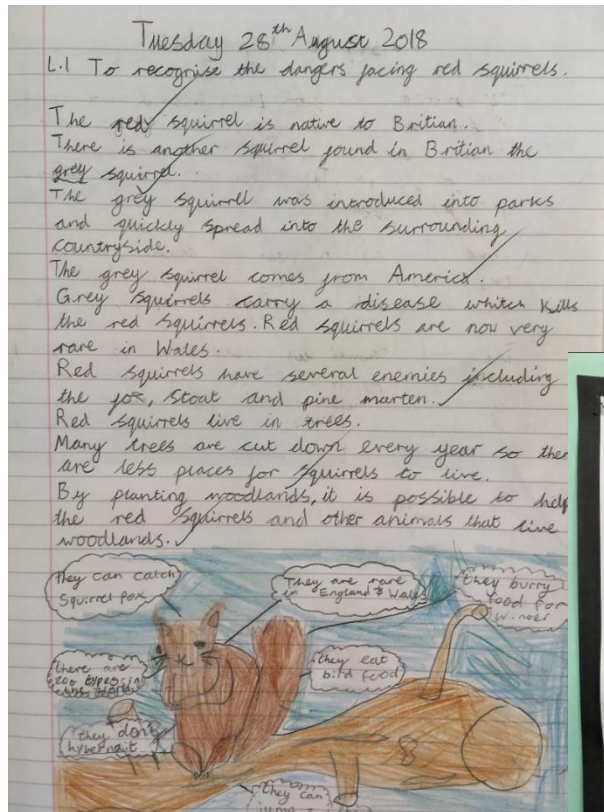 Tuesday 28th August 2018
L.I To recognise the dangers facing red squirrels.
The red squirrel is native to Britian.
There is another squirrel found in Britian the
grey squirrel.
The grey squirrell was introduced into parks
and quickly spread into the surrounding
countryside.
The grey squirrel comes from America.
Grey squirrels carry a disease whitch kills
the red squirrels. Red squirrels are now very
rare in Wales.
Red squirrels have several enemies including
the fox, stoat and pine marten.
Red squirrels live in trees.
Many trees are cut down every year so
are less places for squirrels to live.
By planting woodlands, it is possible to help
the red squirrels and other animals that live
woodlands.
they can catch
Squirrel pox
They are rare
in England & Wales
they burry
food for
there are
200 types
they eat
bird food
they don't
hybernait
they can